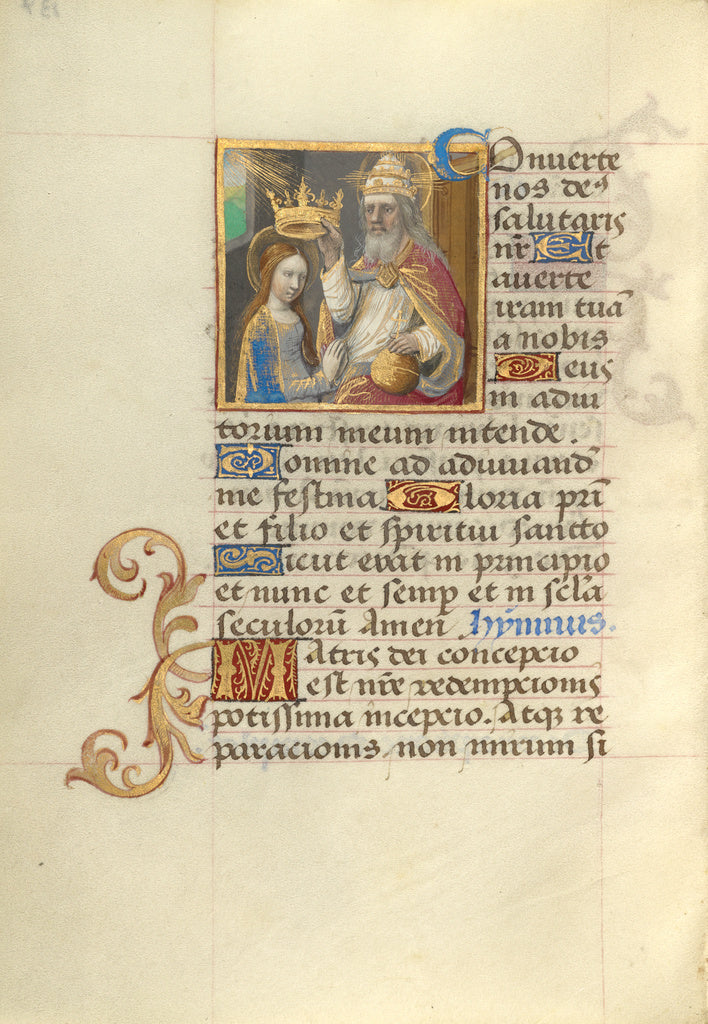 Conuerte
nos deꝰ
salutaris
nr̄ Et
auerte
iram tuā
a nobis
Deus
in adiu
torium meum intende.
Domine ad adiuuand̄
me festina Gloria pr̄i
et filio et spiritui sancto
Sicut erat in principio
et nunc et semp et in sc̄la
seculorū Amen hymnus.
Matris dei concepcio
est nr̄e redempcionis
potissima incepcio. Atqꝫ re
paracionis non mirum si